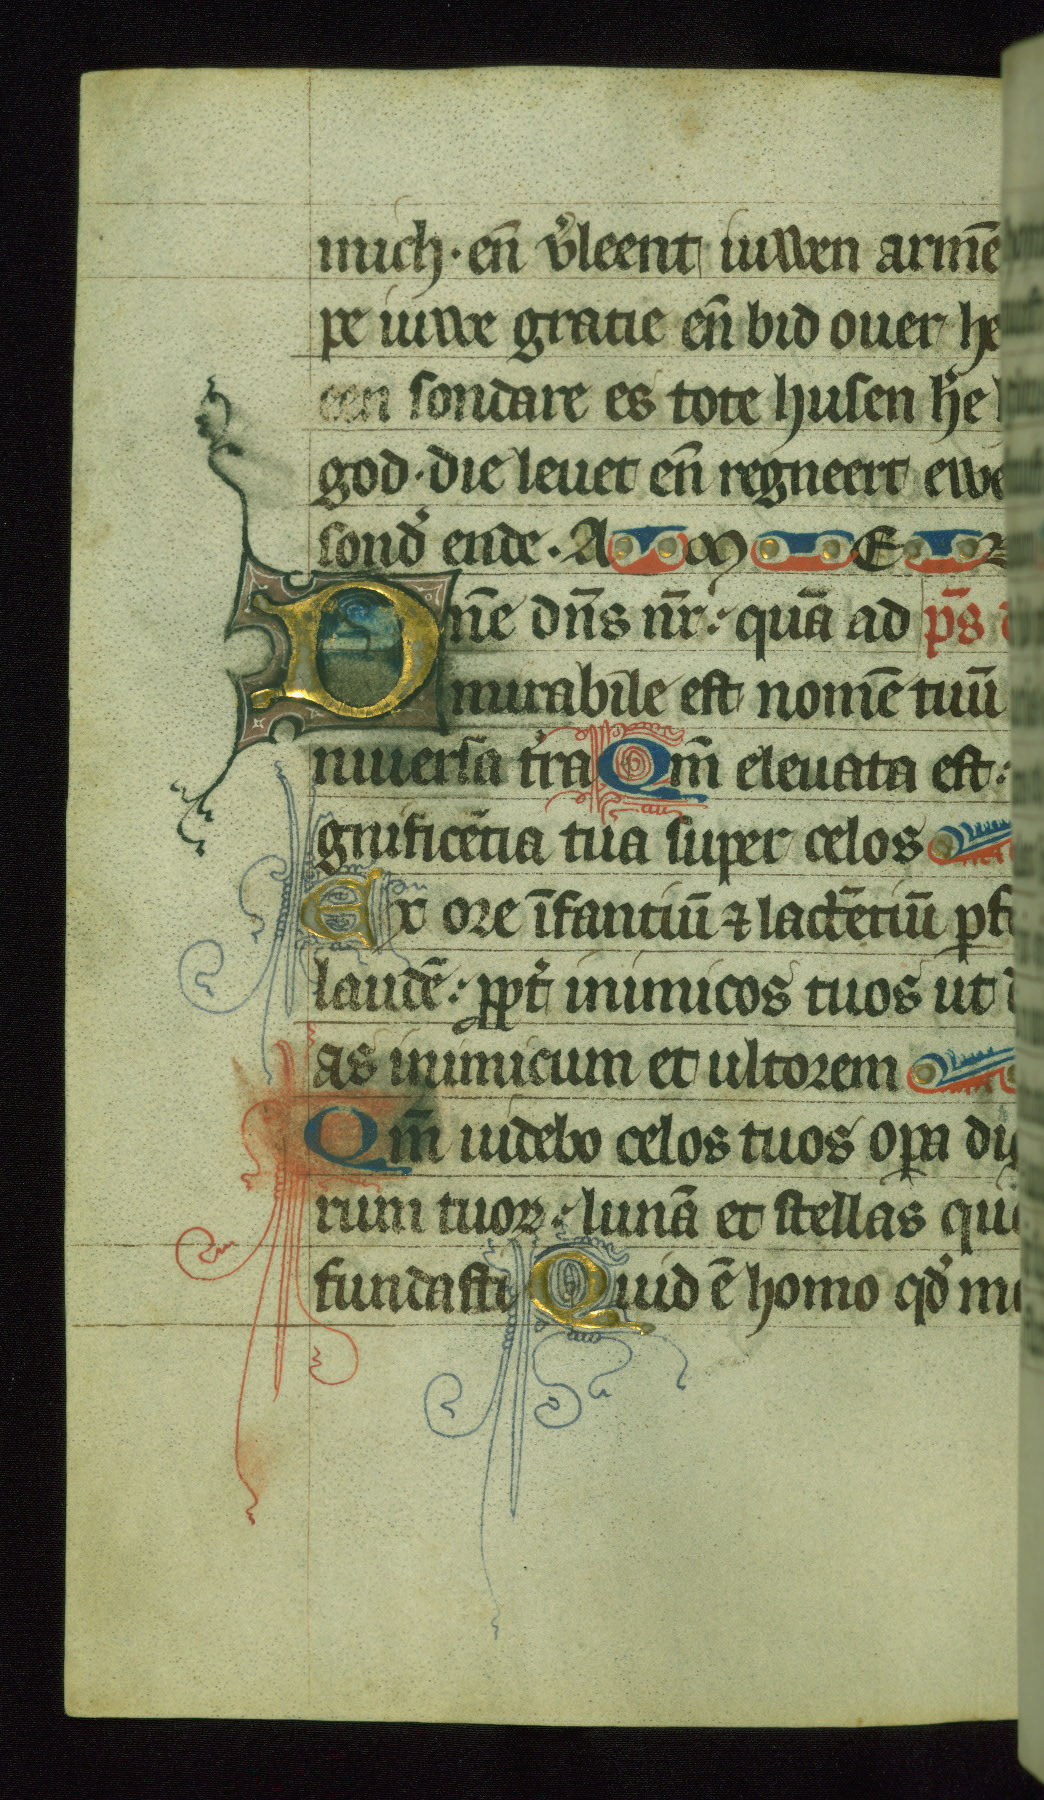 mich · en̄ v̾leent iuwen arme̅
pe iuwe gratie en̄ bid ouer he
een sondare es tote husen h̾e
god · die leuet en̄ regneert ewe
sond̾ ende · A M E N
Dn̄e dn̄s nr̄ : qua̅ ad p̄s
mirabile est nome̅ tuu̅
niuersa t̾ra Qm̄ eleuata est :
gnifice̅tia tua super celos
Ex ore i̅fantiu̅ ⁊ lacte̅tiu̅ ꝑf
laude̅ : ꝓpt̾ inimicos tuos ut
as inimicum et ultorem
Qm̄ uidebo celos tuos oꝑa di
rum tuoꝝ : luna̅ et stellas qu
fundasti Quid e̅ homo qd̾ m